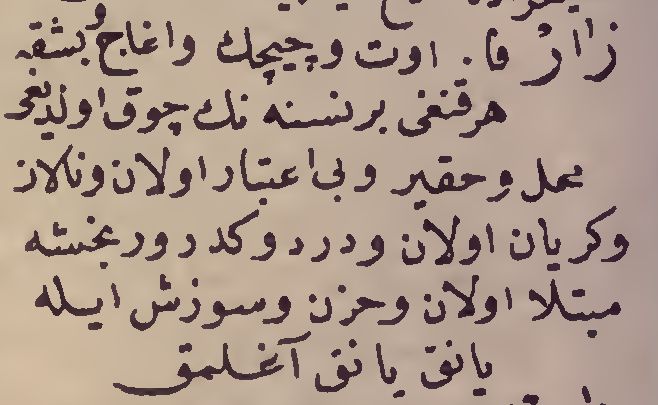 زار فا. اوت و چیچك و اغاج و بشقه
هر قنغی بر نسنه نك چوق اولدیغی
محل و حقیر و بی اعتبار اولان و نالان
و کریان اولان و درد و کدر و رنجشه
مبتلا اولان و حزن و سوزش ایله
یانق یانق آغلمق